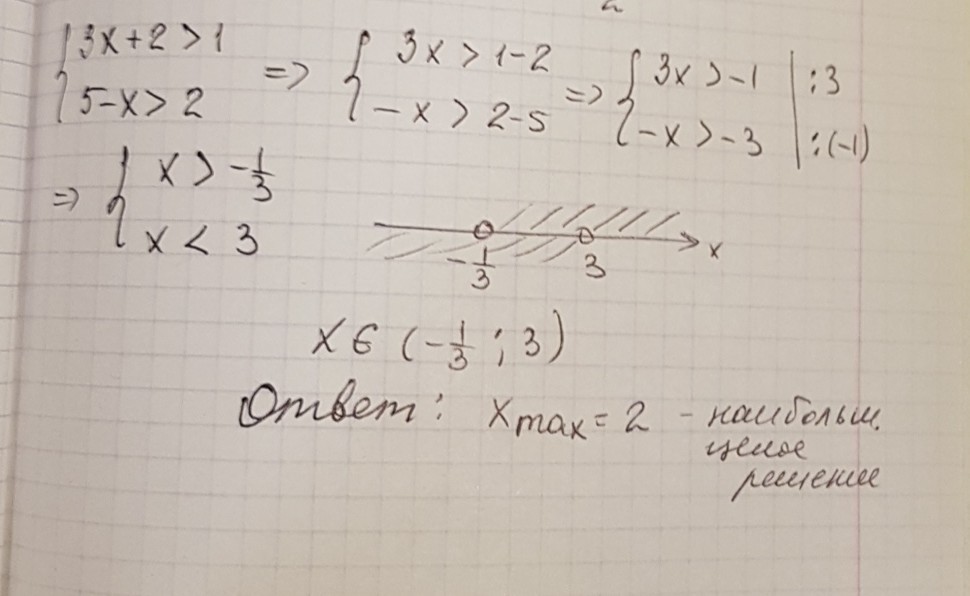 { 3x+2>1 => { 3x > 1-2 => { 3x > -1 | :3
{ 5-x>2 { -x > 2-5 { -x > -3 | :(-1)
=> { x > -1/3
{ x < 3
-1/3 3 x
x ∈ (-1/3 ; 3)
Ответ: xmax = 2 - наибольш.
целое
решение